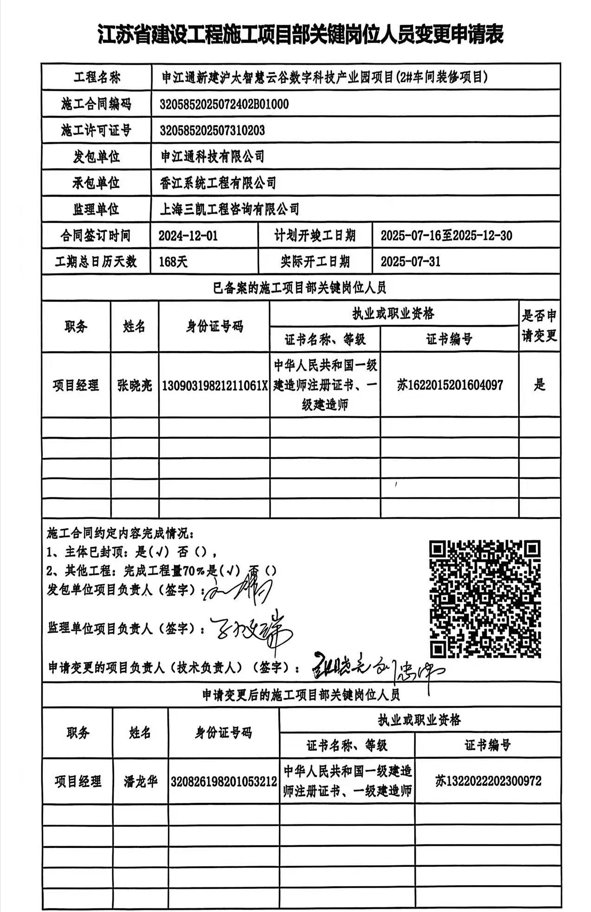 江苏省建设工程施工项目部关键岗位人员变更申请表
工程名称 申江通新建沪太智慧云谷数字科技产业园项目(2#车间装修项目)
施工合同编码 3205852025072402B01000
施工许可证号 320585202507310203
发包单位 申江通科技有限公司
承包单位 香江系统工程有限公司
监理单位 上海三凯工程咨询有限公司
合同签订时间 2024-12-01 计划开竣工日期 2025-07-16至2025-12-30
工期总日历天数 168天 实际开工日期 2025-07-31
已备案的施工项目部关键岗位人员
职务 姓名 身份证号码 执业或职业资格 是否申请变更
证书名称、等级 证书编号
项目经理 张晓亮 13090319821211061X 中华人民共和国一级建造师注册证书、一级建造师 苏1622015201604097 是
施工合同约定内容完成情况:
1、主体已封顶: 是(√) 否(),
2、其他工程: 完成工程量70%是(√) 否()
发包单位项目负责人(签字):
监理单位项目负责人(签字):
申请变更的项目负责人(技术负责人)(签字): 张晓亮
申请变更后的施工项目部关键岗位人员
职务 姓名 身份证号码 执业或职业资格
证书名称、等级 证书编号
项目经理 潘龙华 320826198201053212 中华人民共和国一级建造师注册证书、一级建造师 苏1322022202300972